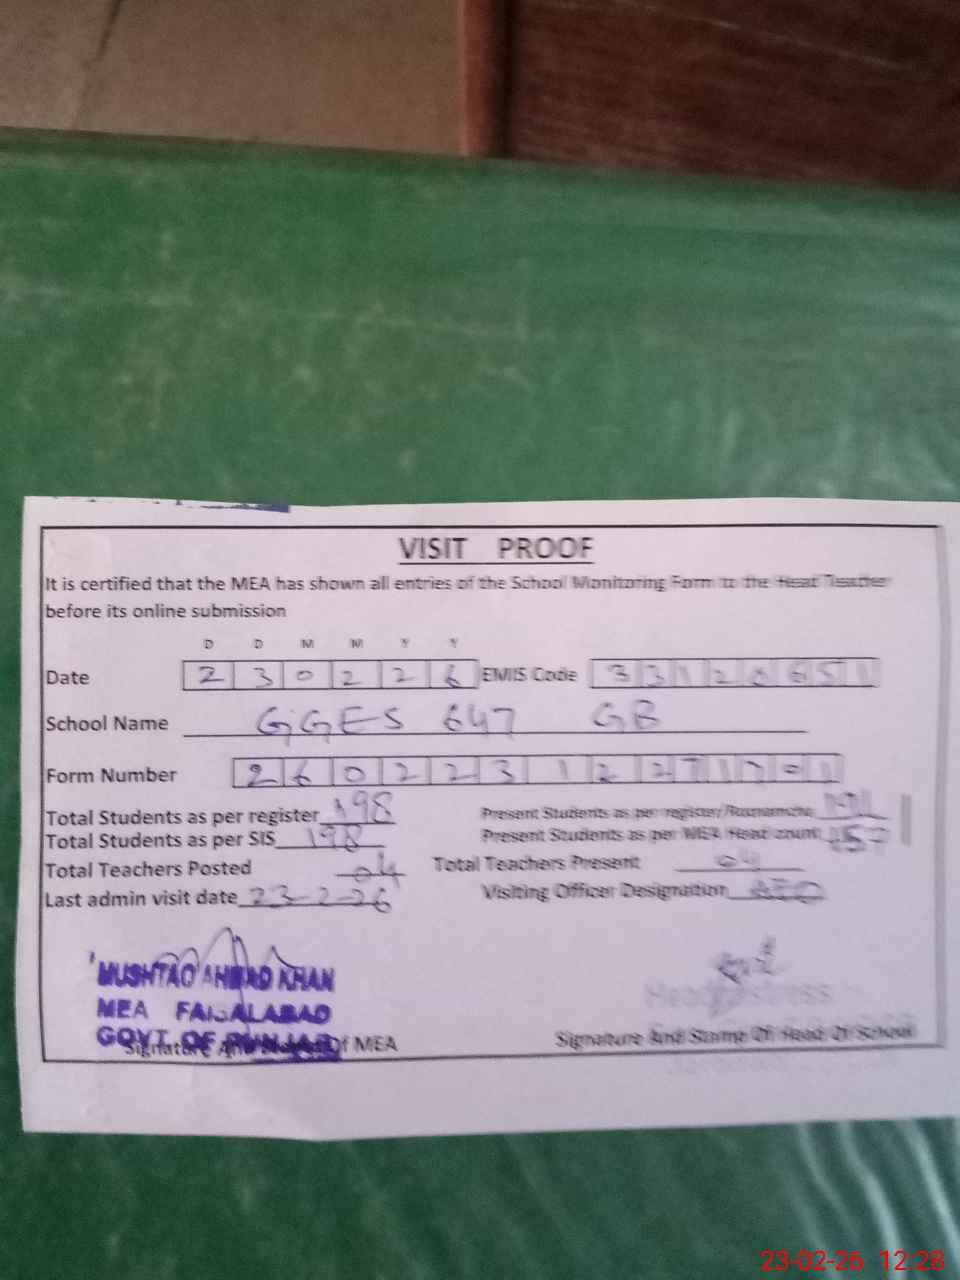 VISIT PROOF
It is certified that the MEA has shown all entries of the School Monitoring Form to the Head Teacher
before its online submission
D D M M Y Y
Date 2 3 0 2 2 6 EMIS Code 3 3 1 2 0 6 5 1
School Name GGES 647 GB
Form Number 2 6 0 2 2 3 1 2 2 7 1 7 0 1
Total Students as per register 198 Present Students as per register/Roznamcha
Total Students as per SIS 198 Present Students as per MEA Head count 157
Total Teachers Posted 04 Total Teachers Present 04
Last admin visit date 23-2-26 Visiting Officer Designation AEO
MUSHTAQ AHMAD KHAN
MEA FAISALABAD
GOVT. OF PUNJAB
Signature And Of MEA
Headmistress
Signature And Stamp Of Head Of School
23-02-26 12:28